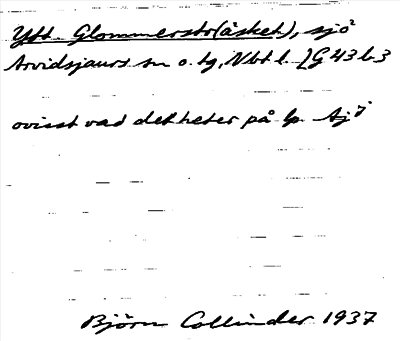 Ytt. Glommerstr(åsket), sjö
Arvidsjaurs sn o. tg, Nbt l. [G 43 b 3
ovisst vad det heter på lp. Aj j
Björn Collinder 1937